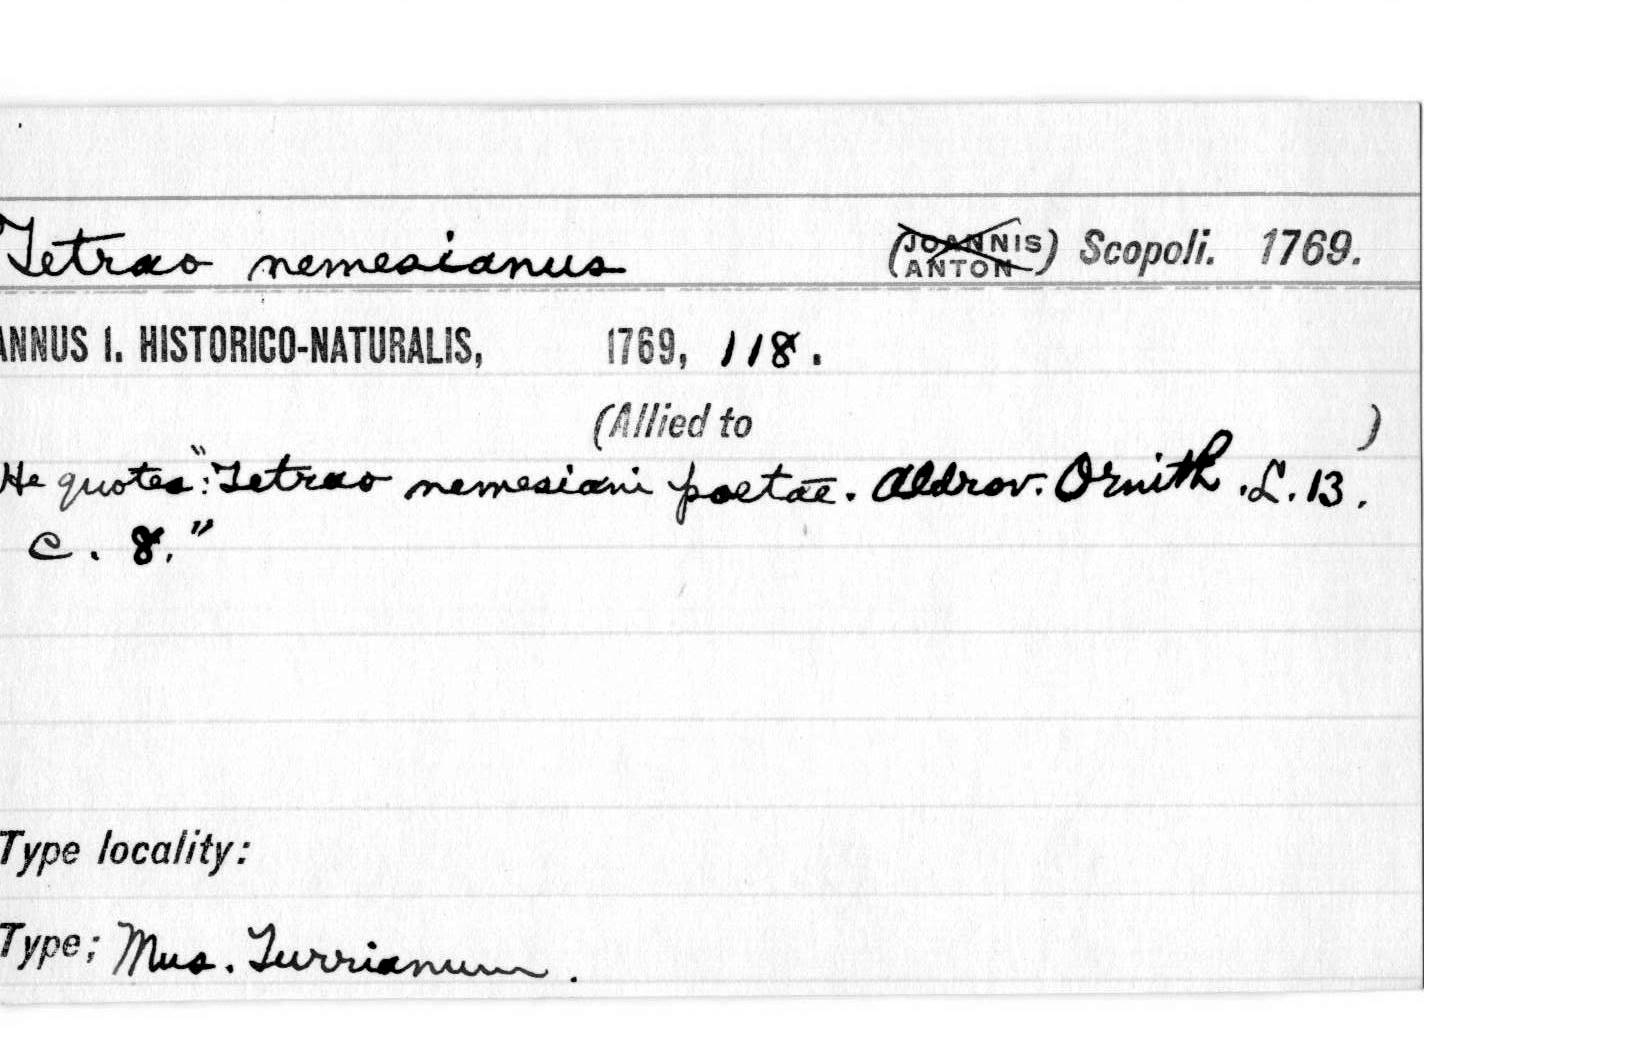 Tetrao nemesianus (JOANNIS ANTON) Scopoli. 1769.
ANNUS I. HISTORICO-NATURALIS, 1769, 118.
(Allied to )
He quotes: "Tetrao nemesiani poetae. Aldrov. Ornith. L. 13.
c. 8."
Type locality:
Type; Mus. Turrianum.